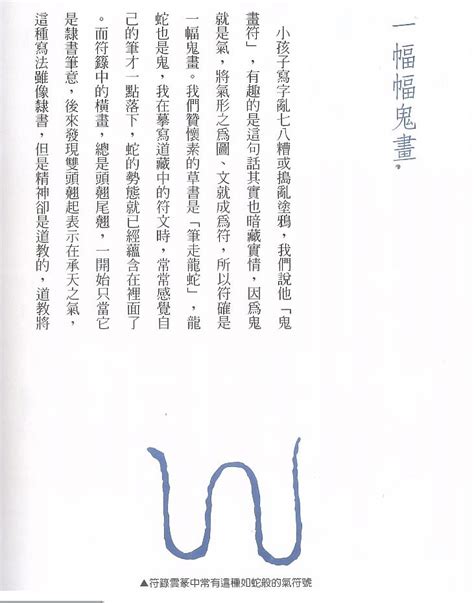 一幅幅鬼畫，
小孩子寫字亂七八糟或搗亂塗鴉，我們說他「鬼
畫符」，有趣的是這句話其實也暗藏實情，因爲鬼
就是氣，將氣形之爲圖、文就成爲符，所以符確是
一幅鬼畫。我們贊懷素的草書是「筆走龍蛇」，龍
蛇也是鬼，我在摹寫道藏中的符文時，常常感覺自
己的筆才一點落下，蛇的勢態就已經蘊含在裡面了
。而符籙中的橫畫，總是頭翹尾翹，一開始只當它
是隸書筆意，後來發現雙頭翹起表示在承天之氣，
這種寫法雖像隸書，但是精神卻是道教的，道教將
▲符籙雲篆中常有這種如蛇般的氣符號